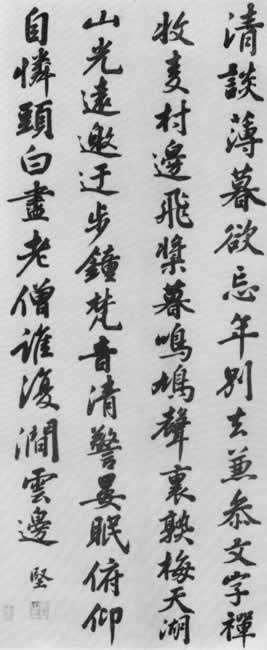 清談薄暮欲忘年別去兼參文字禪
牧麦村邊飛槳暮鳴鳩聲裏熟梅天湖
山光遠邀迂步鐘梵音清警晏眠俯仰
自憐頭白盡老僧誰復澗雲邊 堅